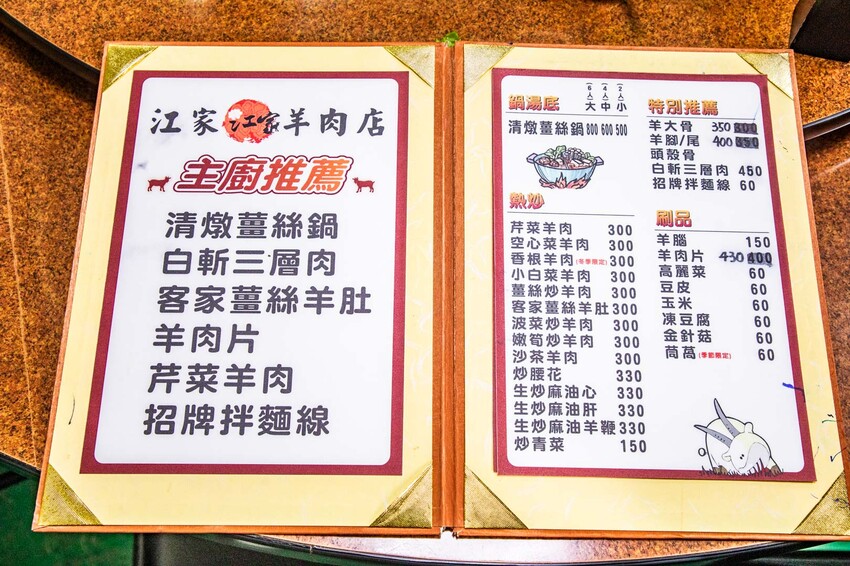 江家 江家 羊肉店
主廚推薦
清燉薑絲鍋
白斬三層肉
客家薑絲羊肚
羊肉片
芹菜羊肉
招牌拌麵線
鍋湯底 大(6人) 中(4人) 小(2人)
清燉薑絲鍋 800 600 500
熱炒
芹菜羊肉 300
空心菜羊肉 300
香根羊肉(冬季限定) 300
小白菜羊肉 300
薑絲炒羊肉 300
客家薑絲羊肚 300
波菜炒羊肉 300
嫩筍炒羊肉 300
沙茶羊肉 300
炒腰花 330
生炒麻油心 330
生炒麻油肝 330
生炒麻油羊鞭 330
炒青菜 150
特別推薦
羊大骨 350 300
羊腳/尾 400 350
頭殼骨
白斬三層肉 450
招牌拌麵線 60
刷品
羊腦 150
羊肉片 430 400
高麗菜 60
豆皮 60
玉米 60
凍豆腐 60
金針菇 60
茼萵(季節限定) 60